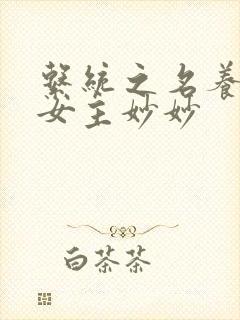 繫統之名養
女主妙妙
白茶茶